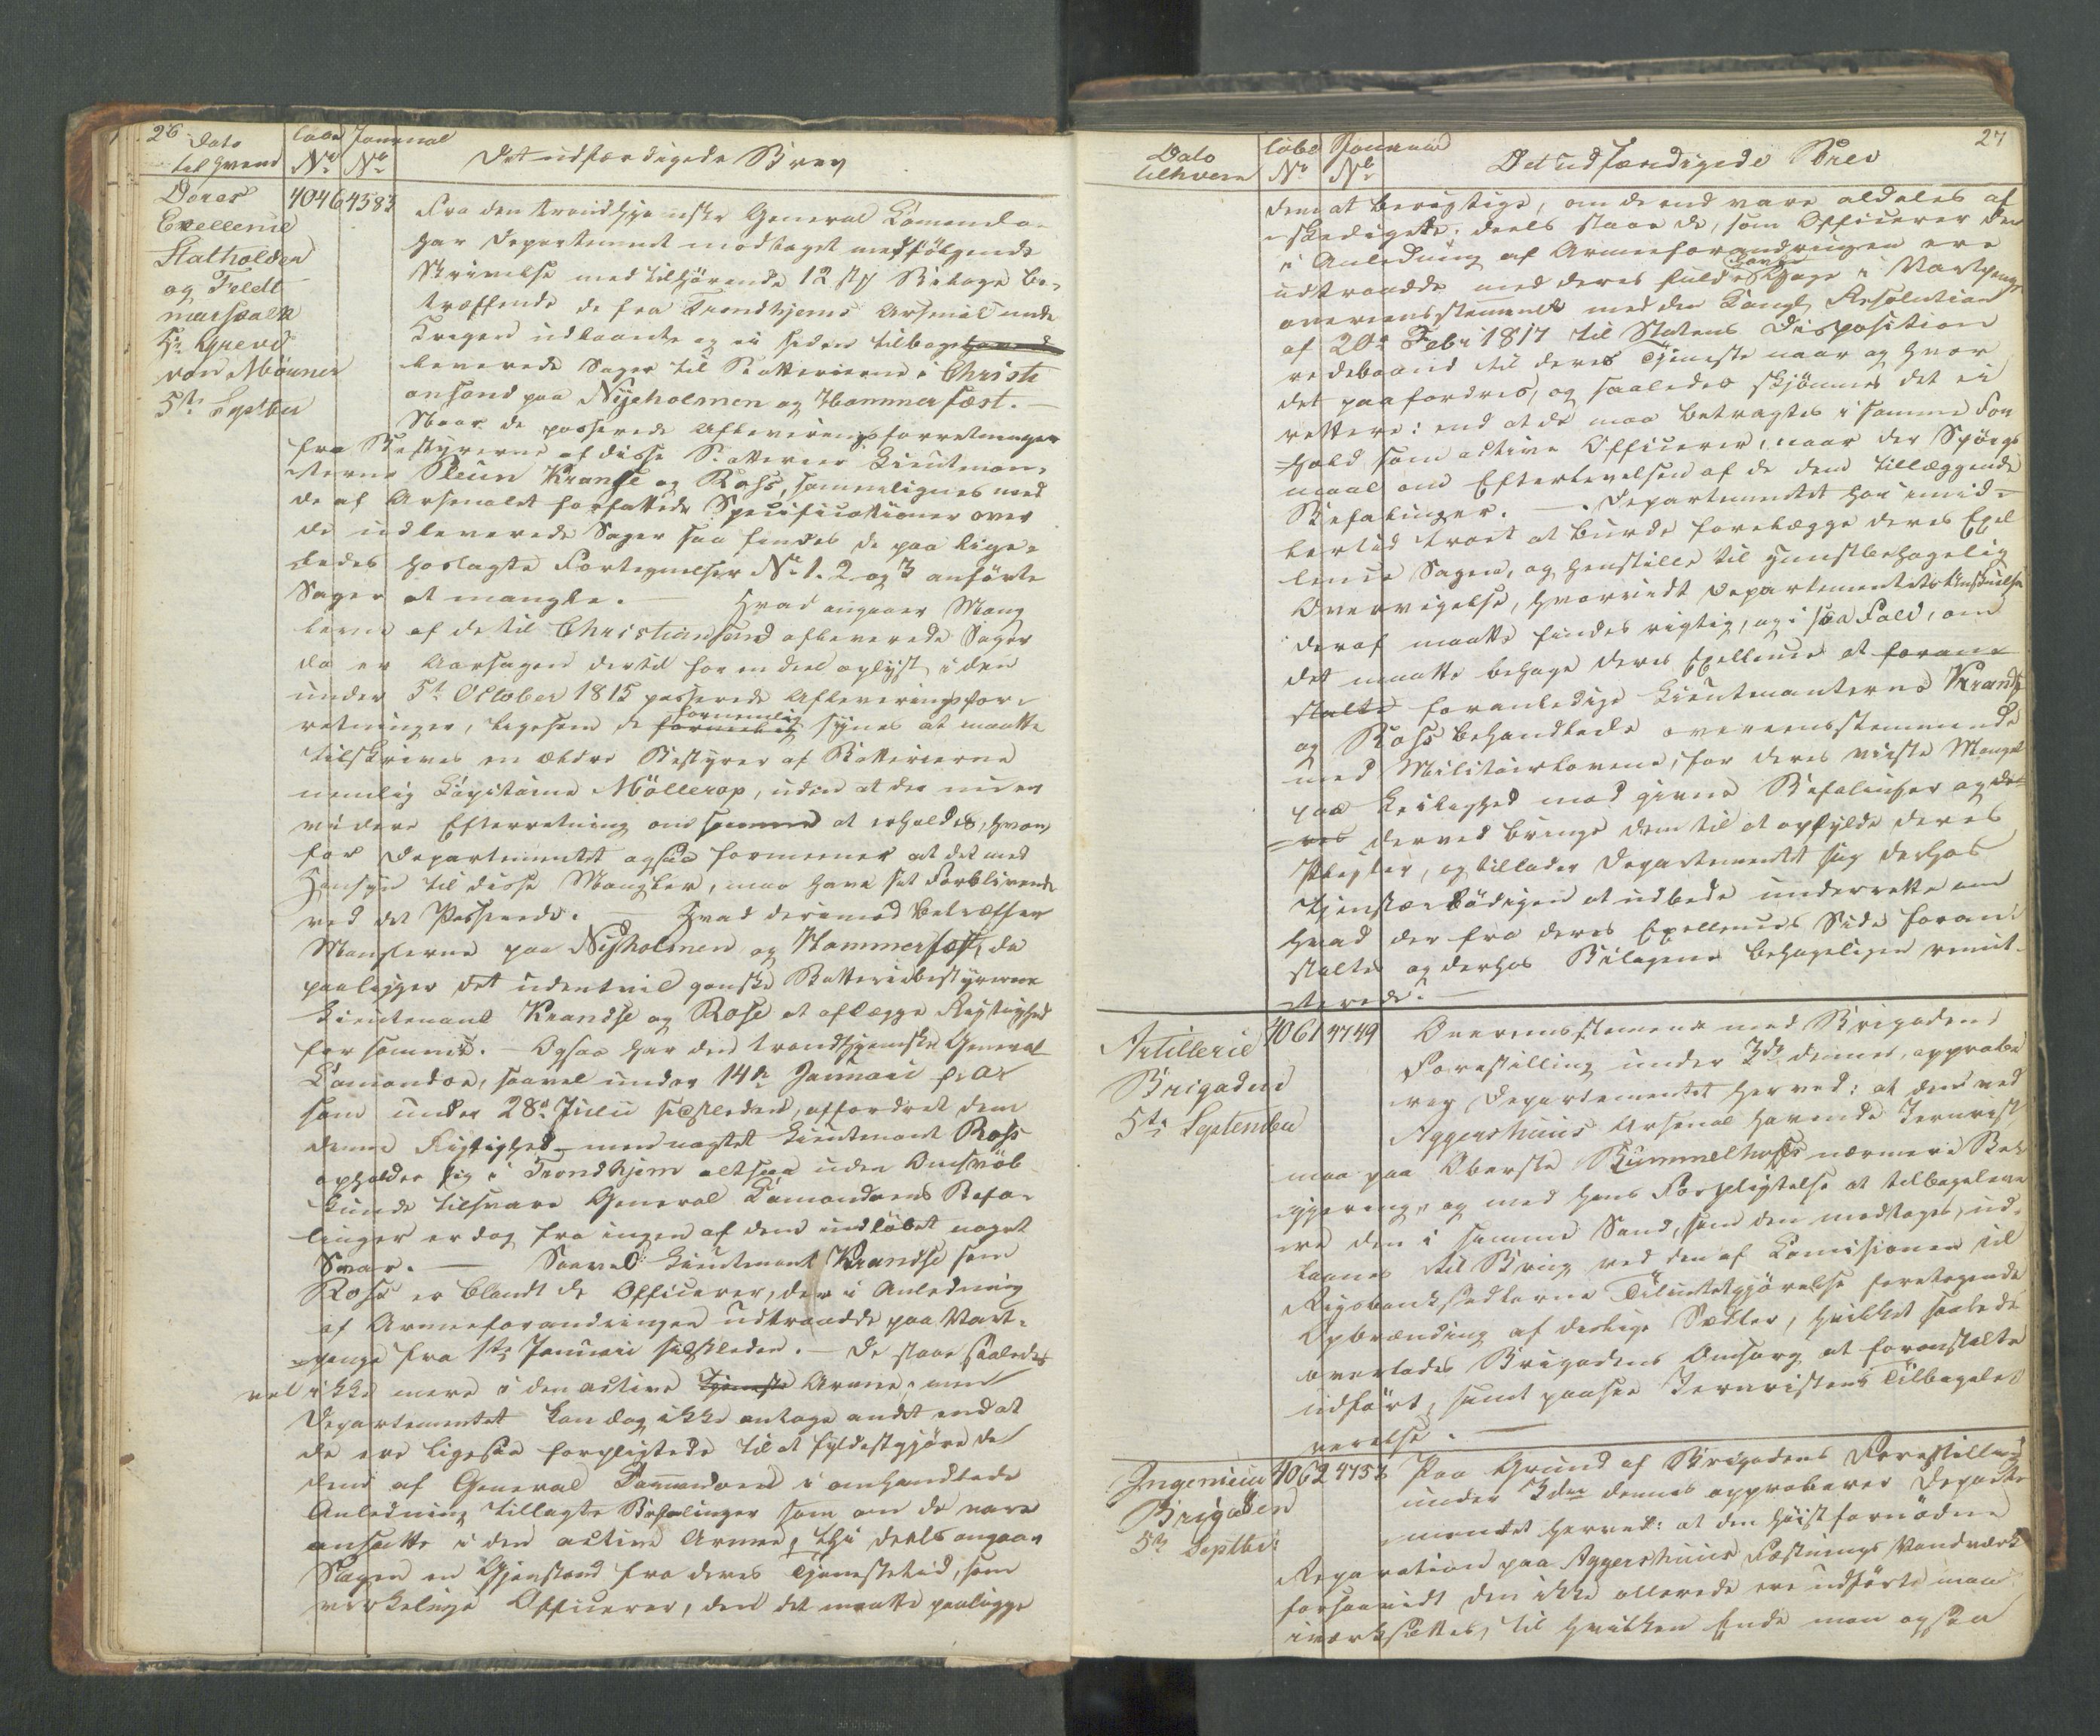 26
Dato
til hvem
Löbe
No
Journal
No
Det udfærdigede Brev
Deres
Excellence
Statholder
og Feldt
marskalk
Hr Greve
von Mörner
5te Septber
4046 4583
Fra den trondhjemske General Comando
har Departementet modtaget medfölgende
Skrivelse med tilhörende 12 st Bilage be-
træffende de fra Trondhjems Arsenal under
Krigen udlaante og ei siden tilbage
leverede Sager til Batterierne i Christi
ansand paa Nyeholmen og Hammerfæst. —
Naar de passerede Afleveringsforretninger
fra Bestyrerne af disse Batterier Lieutnan-
terne Krantze og Ross, sammelignes med
de af Arsenalet forfattede Specificationer over
de udleverede Sager saa findes de paa lige-
ledes hoslagte Fortegnelser No 1. 2 og 3 anförte
Sager at mangle. — Hvad angaaer Mang
lerne af de til Christiansand afleverede Sager
da er Aarsagen dertil for en deel oplyst i den
under 5te October 1815 passerede Afleveringsfor-
retninger, ligesom de fornemlig synes at maatte
tilskrives en ældre Bestyrer af Batterierne
nemlig Capitaine Möllerop, uden at der nu er
videre Efterretning om samme at erholde, hvor
for Departementet ogsaa formeener at det med
Hensyn til disse Mangler, maa have sit Forblivende
ved det Passerede. — Hvad derimod betræffer
Manglerne paa Nyholmen og Hammerfest, da
paaligger det udentvivl ganske Batteriebestyrerne
Lieutenant Krandse og Ross at aflægge Rigtighed
for samme. — Ogsaa har den trondhjemske General
Comandoe, saavel under 14de Januari p. a.
som under 28de Julii sidstleden, affordret dem
denne Rigtighed men uagtet Lieutenant Ross
opholder sig i Trondhjem altsaa uden Omsvöb
kunde tilsvare General Comandoens Befa-
linger er dog fra ingen af dem indlöbet noget
Svar. — Saavel Lieutenant Krandse som
Ross er blandt de Officerer, der i Anledning
af Armeeforandringen udtraadde paa Vart-
penge fra 1te Januari sidstleden. — De staae saaledes
vel ikke mere i den active Tjeneste Armee, men
Departementet kan dog ikke antage andet end at
de ere ligesaa forpligtede til at fyldestgjöre de
dem af General Commandoen i omhandlede
Anledning tillagte Befalinger som om de vare
ansatte i den active Armee, thi deels angaar
Sagen en Gjenstand fra deres Tjenestetid, som
virkelige Officerer, den det maatte paaligge
27
Dato
til hvem
Löbe
No
Journal
No
Det udfærdigede Brev
dem at berigtige, om de end vare aldeles af
skedigede; deels staae de, som Officerer der
i Anledning af Armeeforandringen ere
udtraadde med deres fulde Gage i Vartpenge
overeensstemmende med den Kongl Resolution
af 20de Febr 1817 til Statens Disposition
redebaand til deres Tjeneste naar og hvor
det paafordres, og saaledes skjönnes det ei
rettere: end at de maa betragtes i samme For
hold som active Officerer, naar der Spörgs
maal om Efterlevelsen af de dem tillæggende
Befalinger. — Departementet har imid-
lertid troet at burde forelægge deres Exel
lence Sagen, og henstille til gunstbehagelig
Overveielse, hvorvidt Departementets Anskuelse
deraf maatte findes rigtig, og i saa Fald, om
det maatte behage deres Exellence at foran
stalte foranledige Lieutenanterne Krandse
og Ross behandlede overeensstemmende
med Militairlovene, for deres viiste Mangel
paa Leilighed mod givne Befalinger og de-
res derved bringe dem til at opfylde deres
Pligter, og tillader Departementet sig derhos
tjenstærbödigen at udbede underrette om
hvad der fra deres Exellences Side foran-
staltes og derhos Bilagene behageligen remit-
terede. —
Artillerie
Brigaden
5te September
4061 4749
Overeensstemende med Brigadens
Forestilling under 3de dennes, approbe
rer Departementet herved: at den ved
Aggershuus Arsenal havende Jernrist
maa paa Oberste Kummelhoffs nærmere Be
gjering, og med hans Forpligtelse at tilbageleve
re den i samme Stand, som den modtages, ud-
laanes til Brug ved den af Comisionen til
Rigsbanksedlernes Tilintetgjörelse foretagende
Opbrænding af deslige Sedler, hvilket saalede
overlades Brigadens Omsorg at foranstalte
udfört, samt paasee Jernristens Tilbagele
verelse. —
Ingenieur
Brigaden
5te Septbr
4062 4753
Paa Grund af Brigadens Forestilling
under 3die dennes approberer Departe
mentet herved: at den höist fornödne
Reparation paa Aggershuus Fæstnings Vandværk
forsaavidt den ikke allerede ere udförte maa
iværksættes, til hvilken Ende man ogsaa